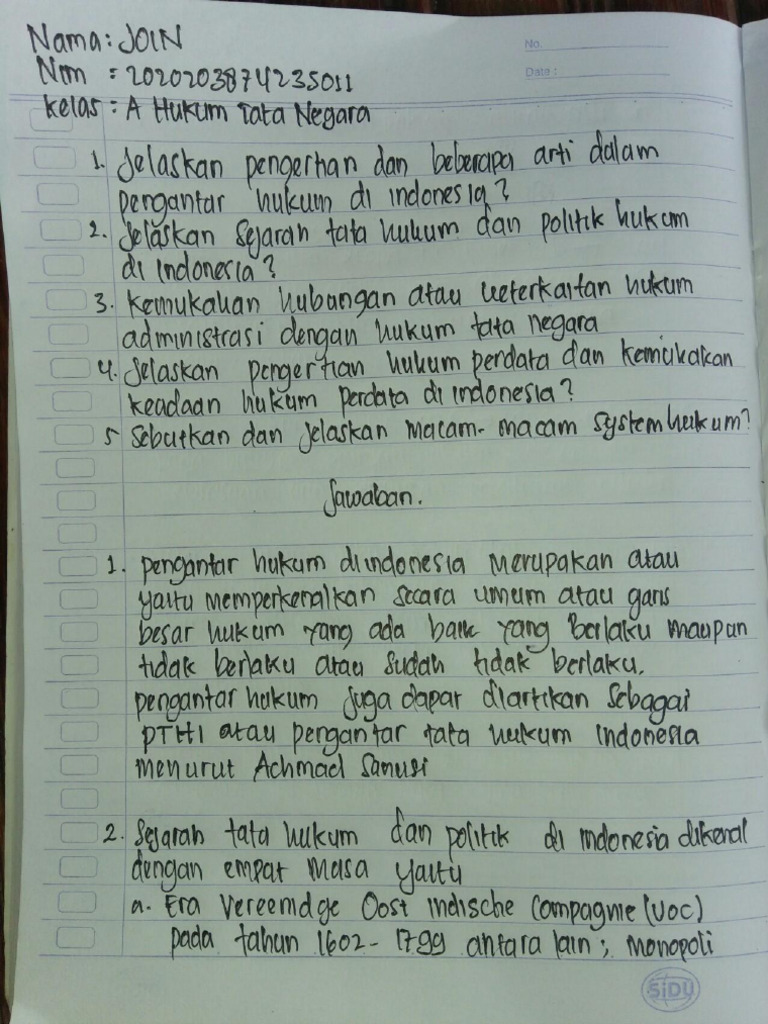 No.
Date :
Nama: JOIN
Nim : 2020203874235011
Kelas : A Hukum Tata Negara
1. Jelaskan pengertian dan beberapa arti dalam
pengantar hukum di indonesia?
2. Jelaskan Sejarah tata hukum dan politik hukum
di Indonesia?
3. Kemukakan hubungan atau keterkaitan hukum
administrasi dengan hukum tata negara
4. Jelaskan pengertian hukum perdata dan kemukakan
keadaan hukum perdata di indonesia?
5 Sebutkan dan jelaskan macam-macam system hukum?
Jawaban.
1. pengantar hukum di indonesia merupakan atau
yaitu memperkenalkan secara umum atau garis
besar hukum yang ada baik yang berlaku maupun
tidak berlaku atau sudah tidak berlaku.
pengantar hukum juga dapat diartikan sebagai
PTHI atau pengantar tata hukum indonesia
menurut Achmad Sanusi
2. Sejarah tata hukum dan politik di indonesia dikenal
dengan empat masa yaitu
a. Era Vereemdge Oost indische Compagnie (VOC)
pada tahun 1602-1799 antara lain; monopoli
SiDU